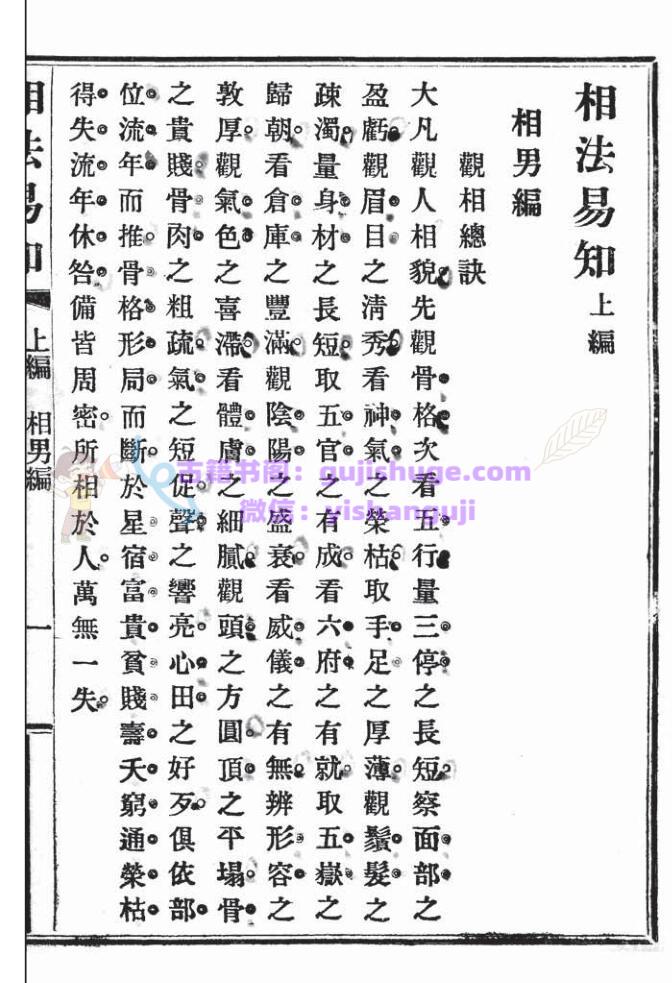 相法易知 上編
相男編
觀相總訣
大凡觀人相貌先觀骨格次看五行量三停之長短察面部之
盈虧觀眉目之清秀看神氣之榮枯取手足之厚薄觀鬚髮之
疎濁量身材之長短取五官之有成看六府之有就取五嶽之
歸朝看倉庫之豐滿觀陰陽之盛衰看威儀之有無辨形容之
敦厚觀氣色之喜滯看體膚之細膩觀頭之方圓頂之平塌骨
之貴賤骨肉之粗疏氣之短促聲之響亮心田之好歹俱依部
位流年而推骨格形局而斷於星宿富貴貧賤壽夭窮通榮枯
得失流年休咎備皆周密所相於人萬無一失
相法易知 上編 相男編 一
古籍书阁：gujishuge.com
微信：yishanguji